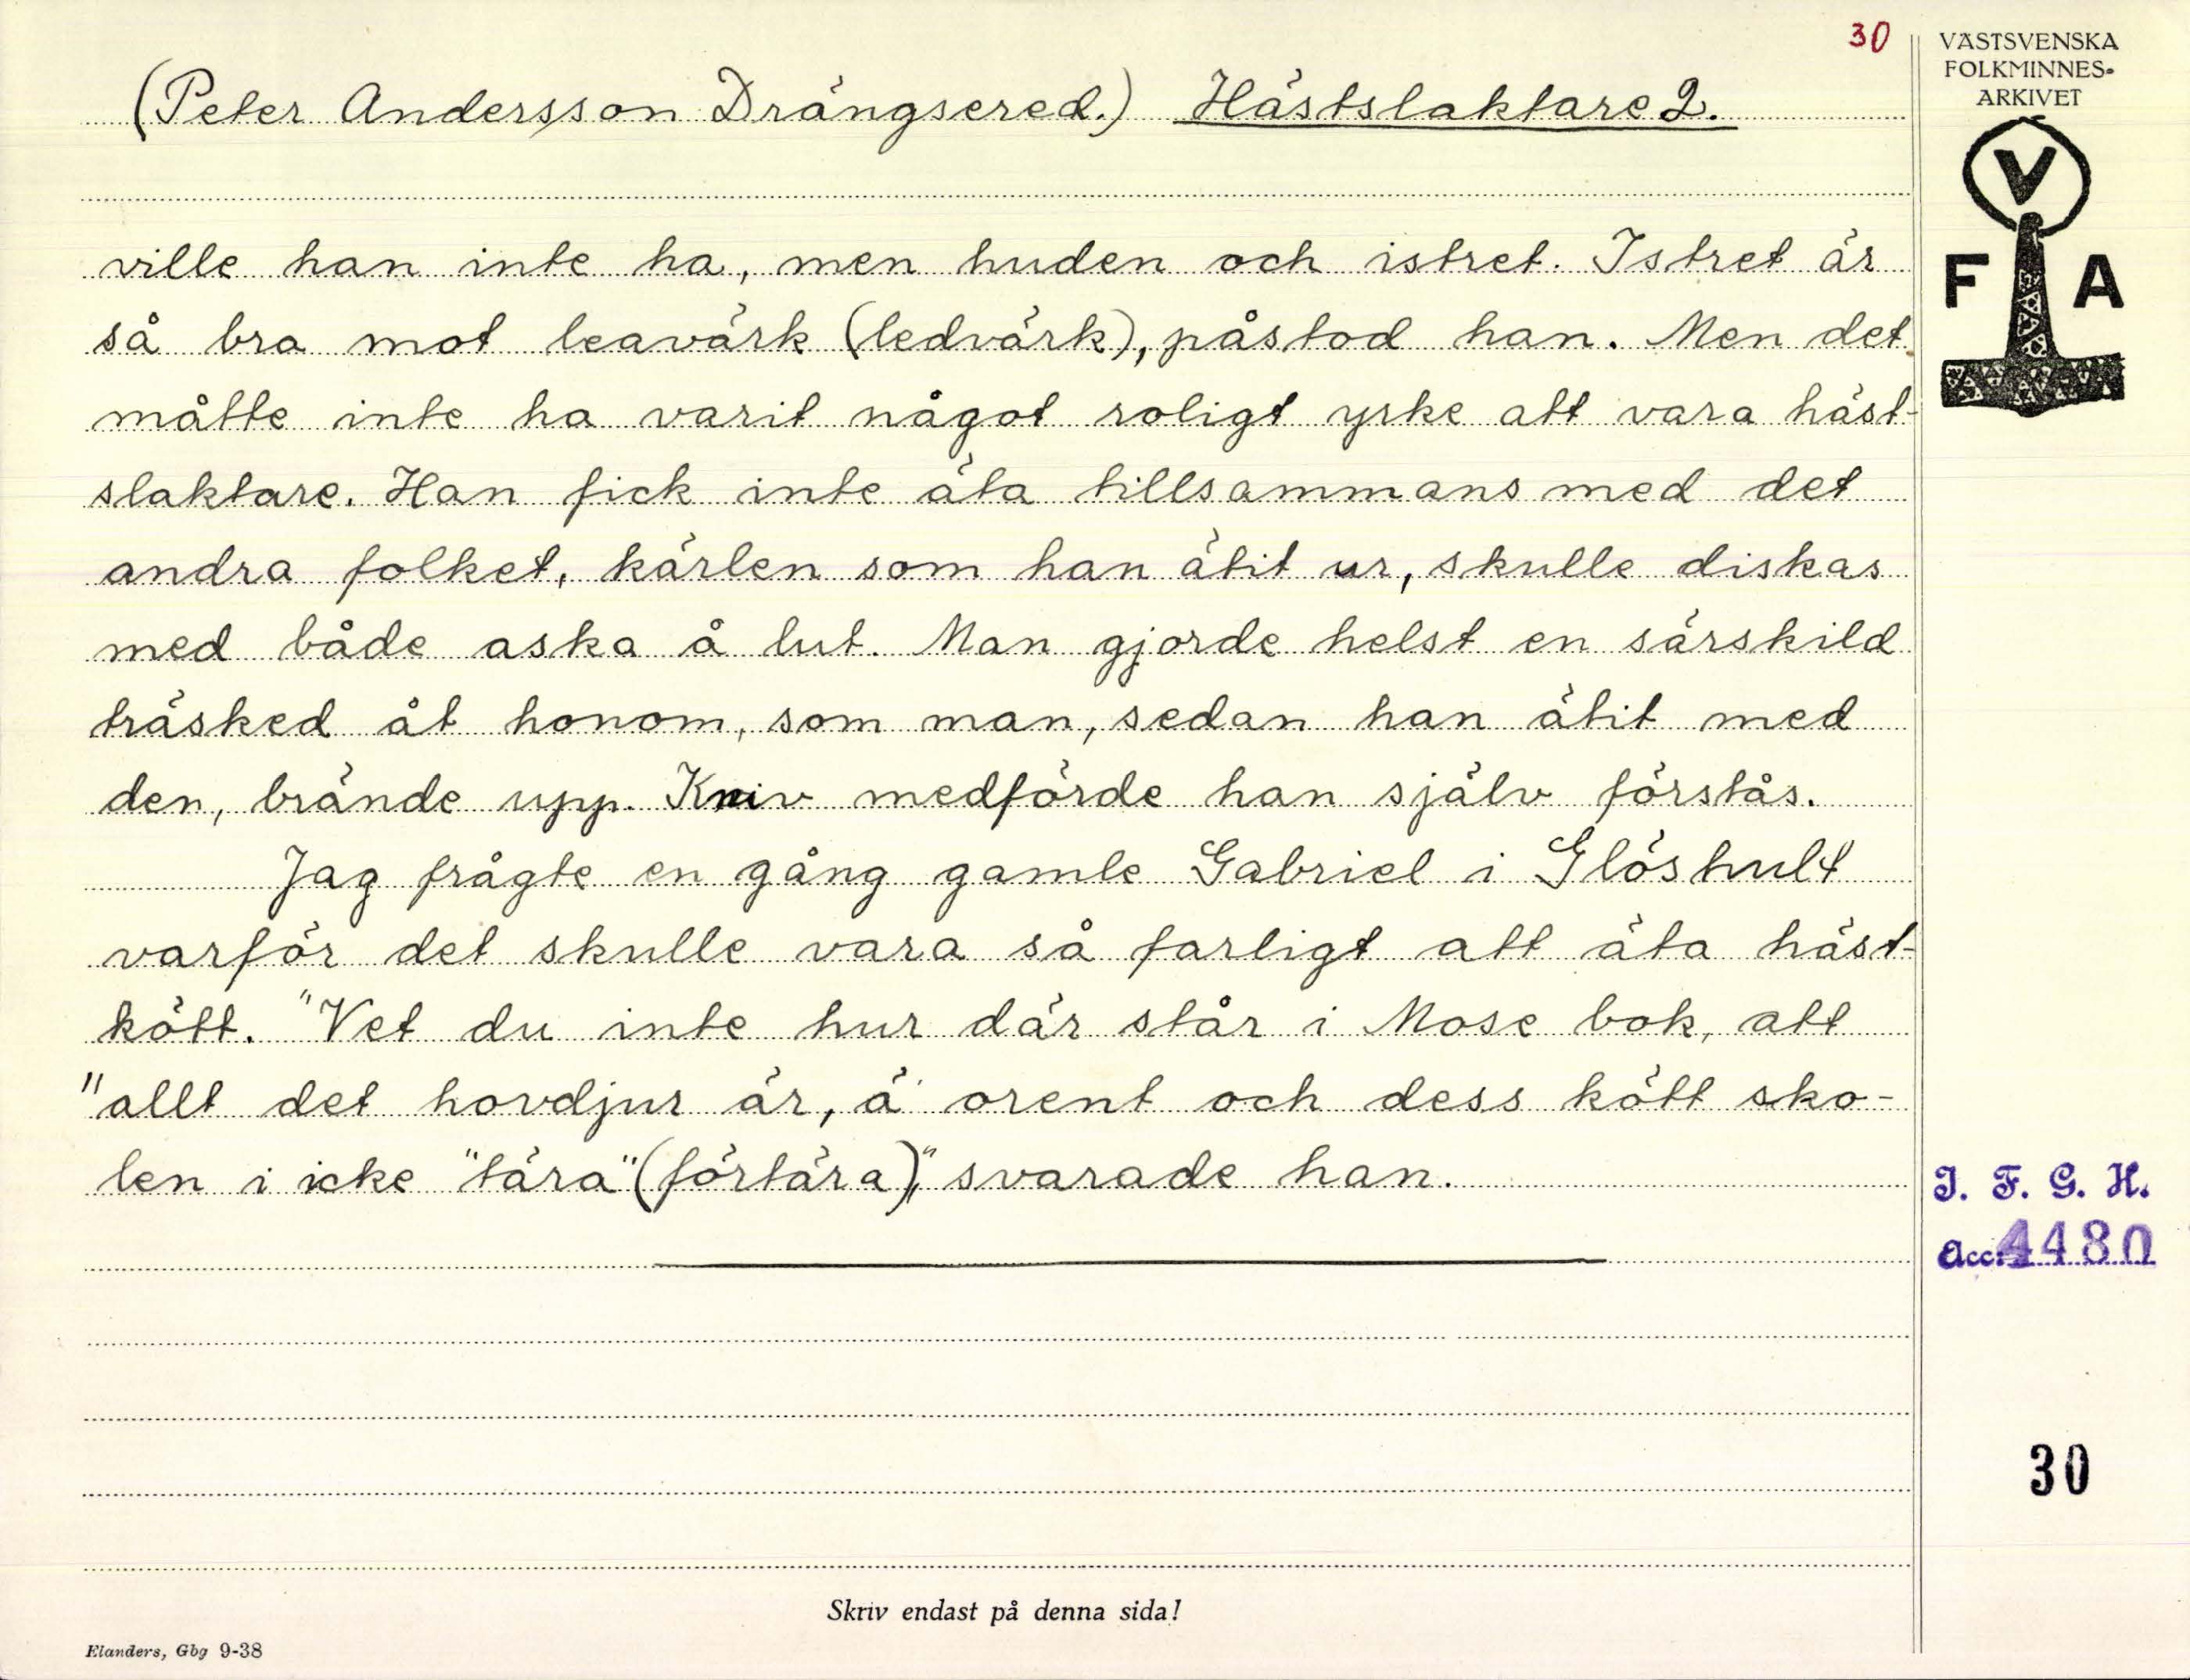 30
(Peter Andersson Drängsered.) Hästslaktare 2.
ville han inte ha, men huden och istret. Istret är
så bra mot leavärk (ledvärk), påstod han. Men det
måtte inte ha varit något roligt yrke att vara häst-
slaktare. Han fick inte äta tillsammans med det
andra folket, kärlen som han ätit ur, skulle diskas
med både aska å lut. Man gjorde helst en särskild
träsked åt honom, som man, sedan han ätit med
den, brände upp. Kniv medförde han själv förstås.
Jag frågte en gång gamle Gabriel i Glöshult
varför det skulle vara så farligt att äta häst-
kött. "Vet du inte hur där står i Mose bok, att
"allt det hovdjur är, ä' orent och dess kött sko-
len i icke "tära" (förtära)", svarade han.
VÄSTSVENSKA
FOLKMINNES-
ARKIVET
V
F A
I. F. G. H.
Acc. 4480
30
Skriv endast på denna sida!
Elanders, Gbg 9-38